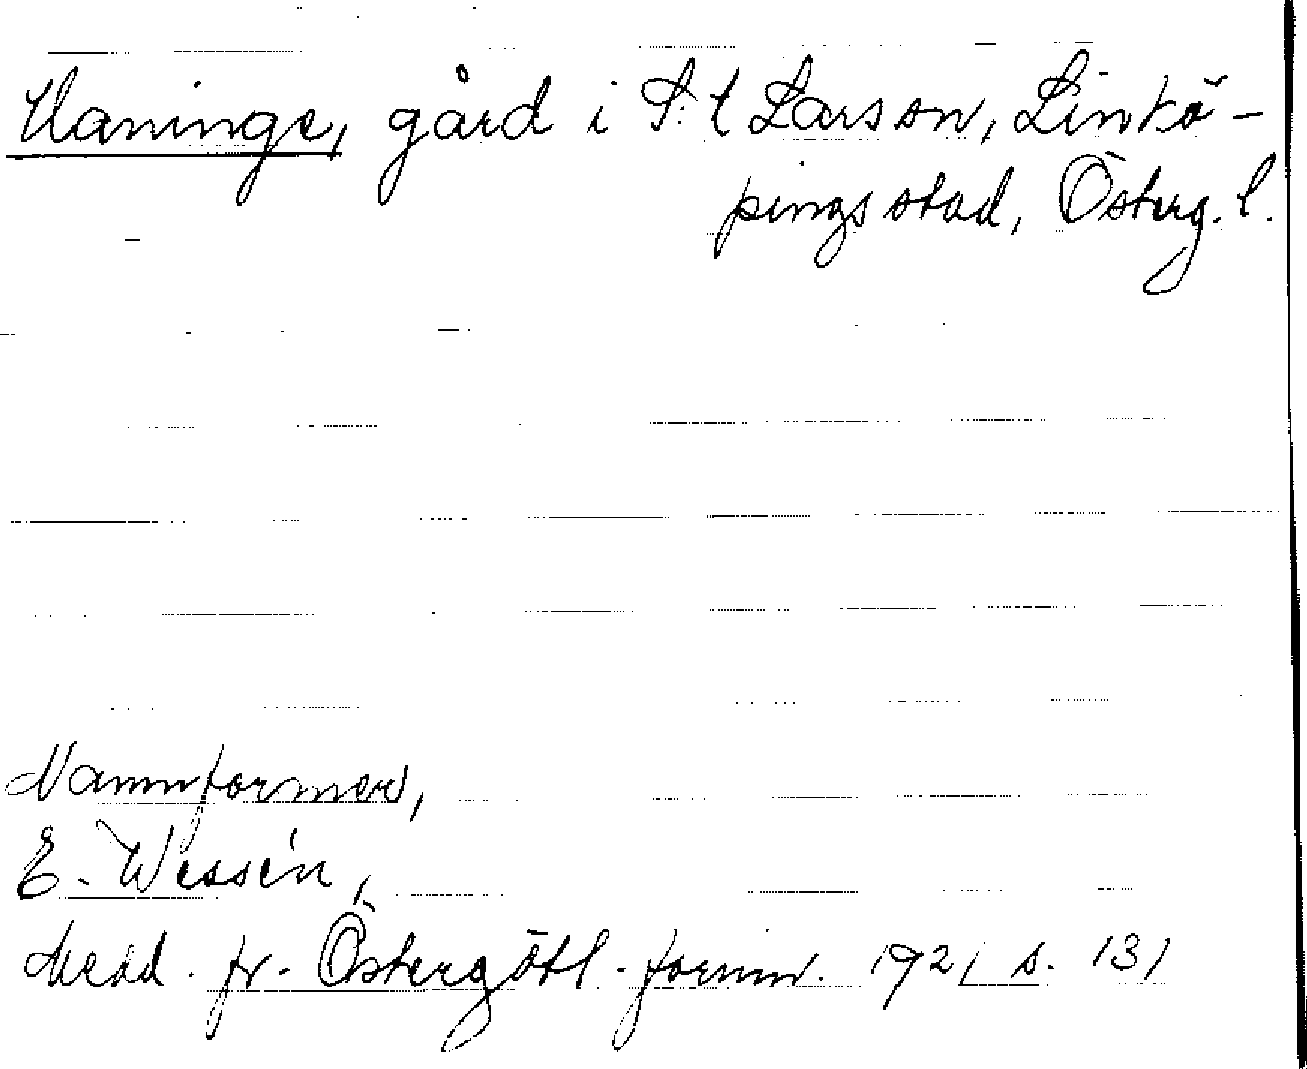 Haninge, gård i S:t Larson, Linkö-
pings stad, Österg. l.
Namnformer,
E. Wessén,
Medd. fr. Östergötl. fornm. 1921 s. 131